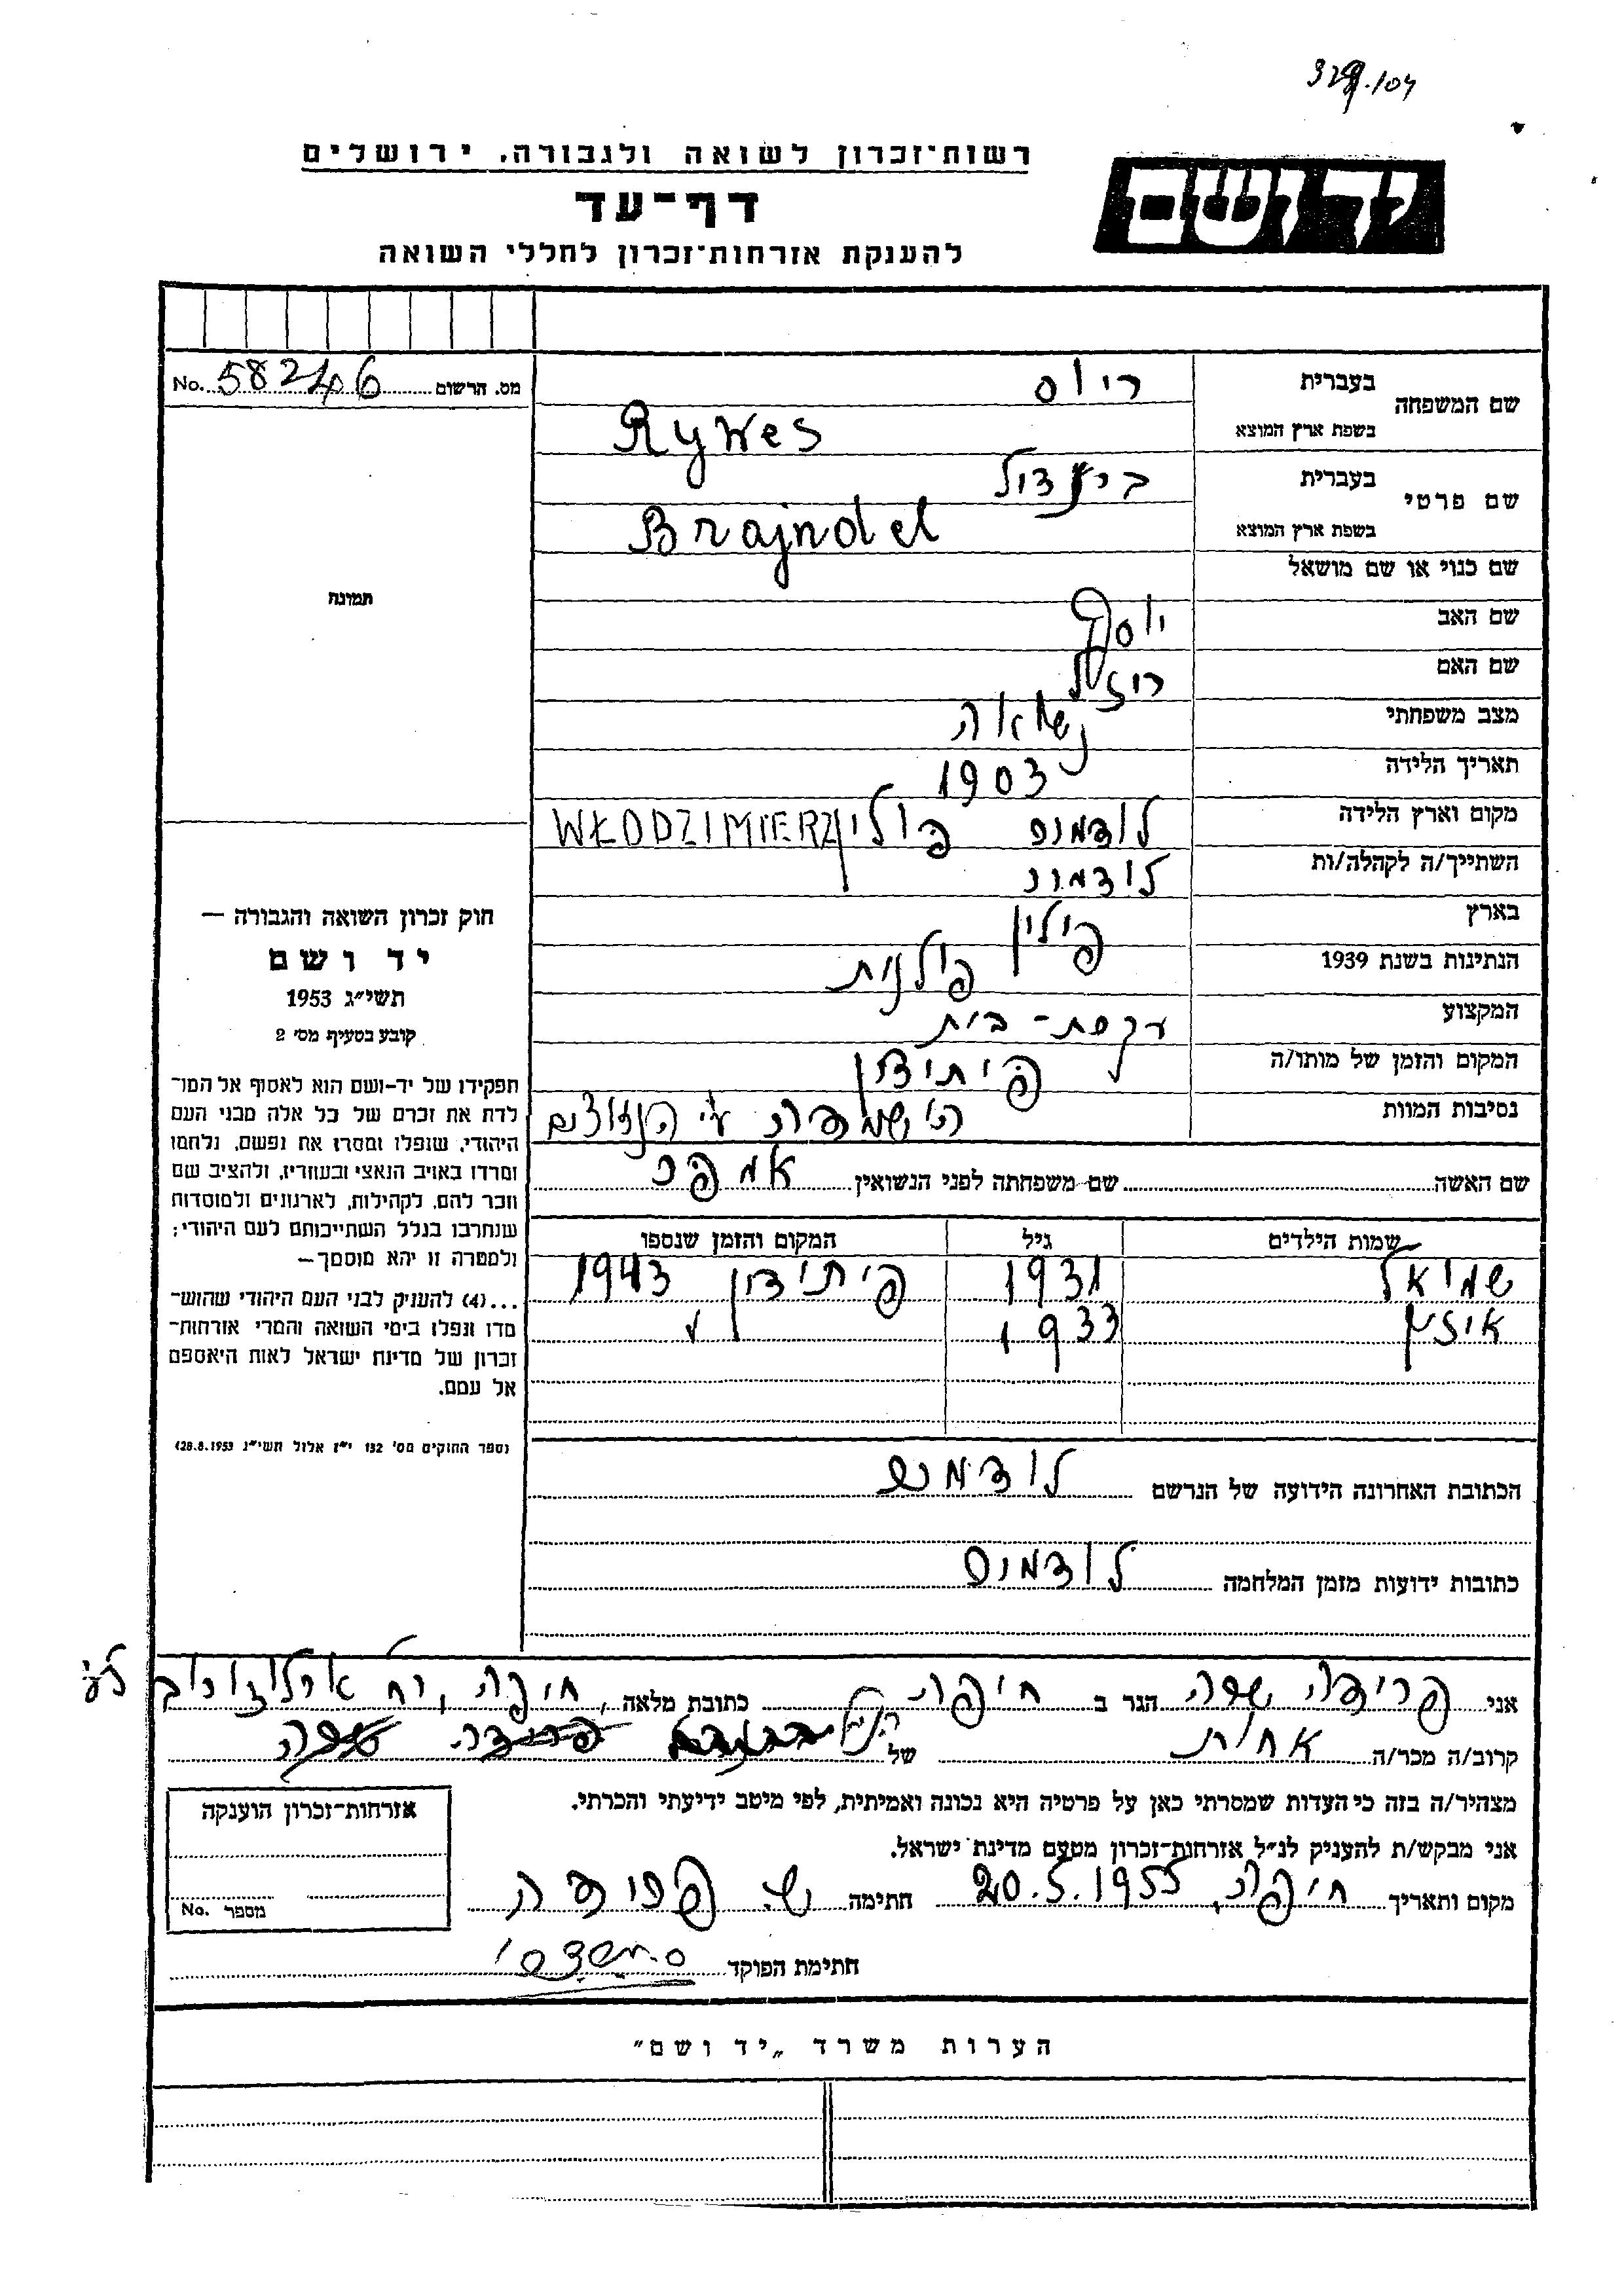 329.104
רשות־זכרון לשואה ולגבורה, ירושלים
יד ושם
דף־עד
להענקת אזרחות־זכרון לחללי השואה
מס. הרשום No. 58246
שם המשפחה בעברית ריוס
בשפת ארץ המוצא Rywes
שם פרטי בעברית בריינדול
בשפת ארץ המוצא Brajndel
שם כנוי או שם מושאל
שם האב יוסף
שם האם רוזל
מצב משפחתי נשואה
תאריך הלידה 1903
מקום וארץ הלידה לודמיר פולין WŁODZIMIERZ
השתייך/ה לקהלה/ות לודמיר
בארץ פולין
הנתינות בשנת 1939 פולנית
המקצוע עקרת-בית
המקום והזמן של מותו/ה פיתידן
נסיבות המוות ע"י הנאצים
תמונה
חוק זכרון השואה והגבורה —
יד ושם
תשי״ג 1953
קובע בסעיף מס׳ 2
תפקידו של יד-ושם הוא לאסוף אל המו־
לדת את זכרם של כל אלה מבני העם
היהודי, שנפלו ומסרו את נפשם, נלחמו
ומרדו באויב הנאצי ובעוזריו, ולהציב שם
וזכר להם, לקהילות, לארגונים ולמוסדות
שנחרבו בגלל השתייכותם לעם היהודי;
ולמטרה זו יהא מוסמך—
...(4) להעניק לבני העם היהודי שהוש־
מדו ונפלו בימי השואה והמרי אזרחות־
זכרון של מדינת ישראל לאות היאספם
אל עמם.
(ספר החוקים מס׳ 132 י״ז אלול תשי״ג 28.8.1953)
שם האשה שם משפחתה לפני הנשואין
שמות הילדים גיל המקום והזמן שנספו
שמואל 1931 פיתידן 1943
אייזיק 1933
הכתובת האחרונה הידועה של הנרשם לודמיר
כתובות ידועות מזמן המלחמה לודמיר
אני פרידה שרה הגר ב חיפה כתובת מלאה חיפה, רח ארלוזורוב
קרוב/ה מכר/ה אחות של הנ"ל
מצהיר/ה בזה כי העדות שמסרתי כאן על פרטיה היא נכונה ואמיתית, לפי מיטב ידיעתי והכרתי.
אני מבקש/ת להעניק לנ״ל אזרחות־זכרון מטעם מדינת ישראל.
מקום ותאריך חיפה, 20.5.1955 חתימה ש. פרידה
חתימת הפוקד
אזרחות־זכרון הוענקה
מספר No.
הערות משרד „יד ושם״